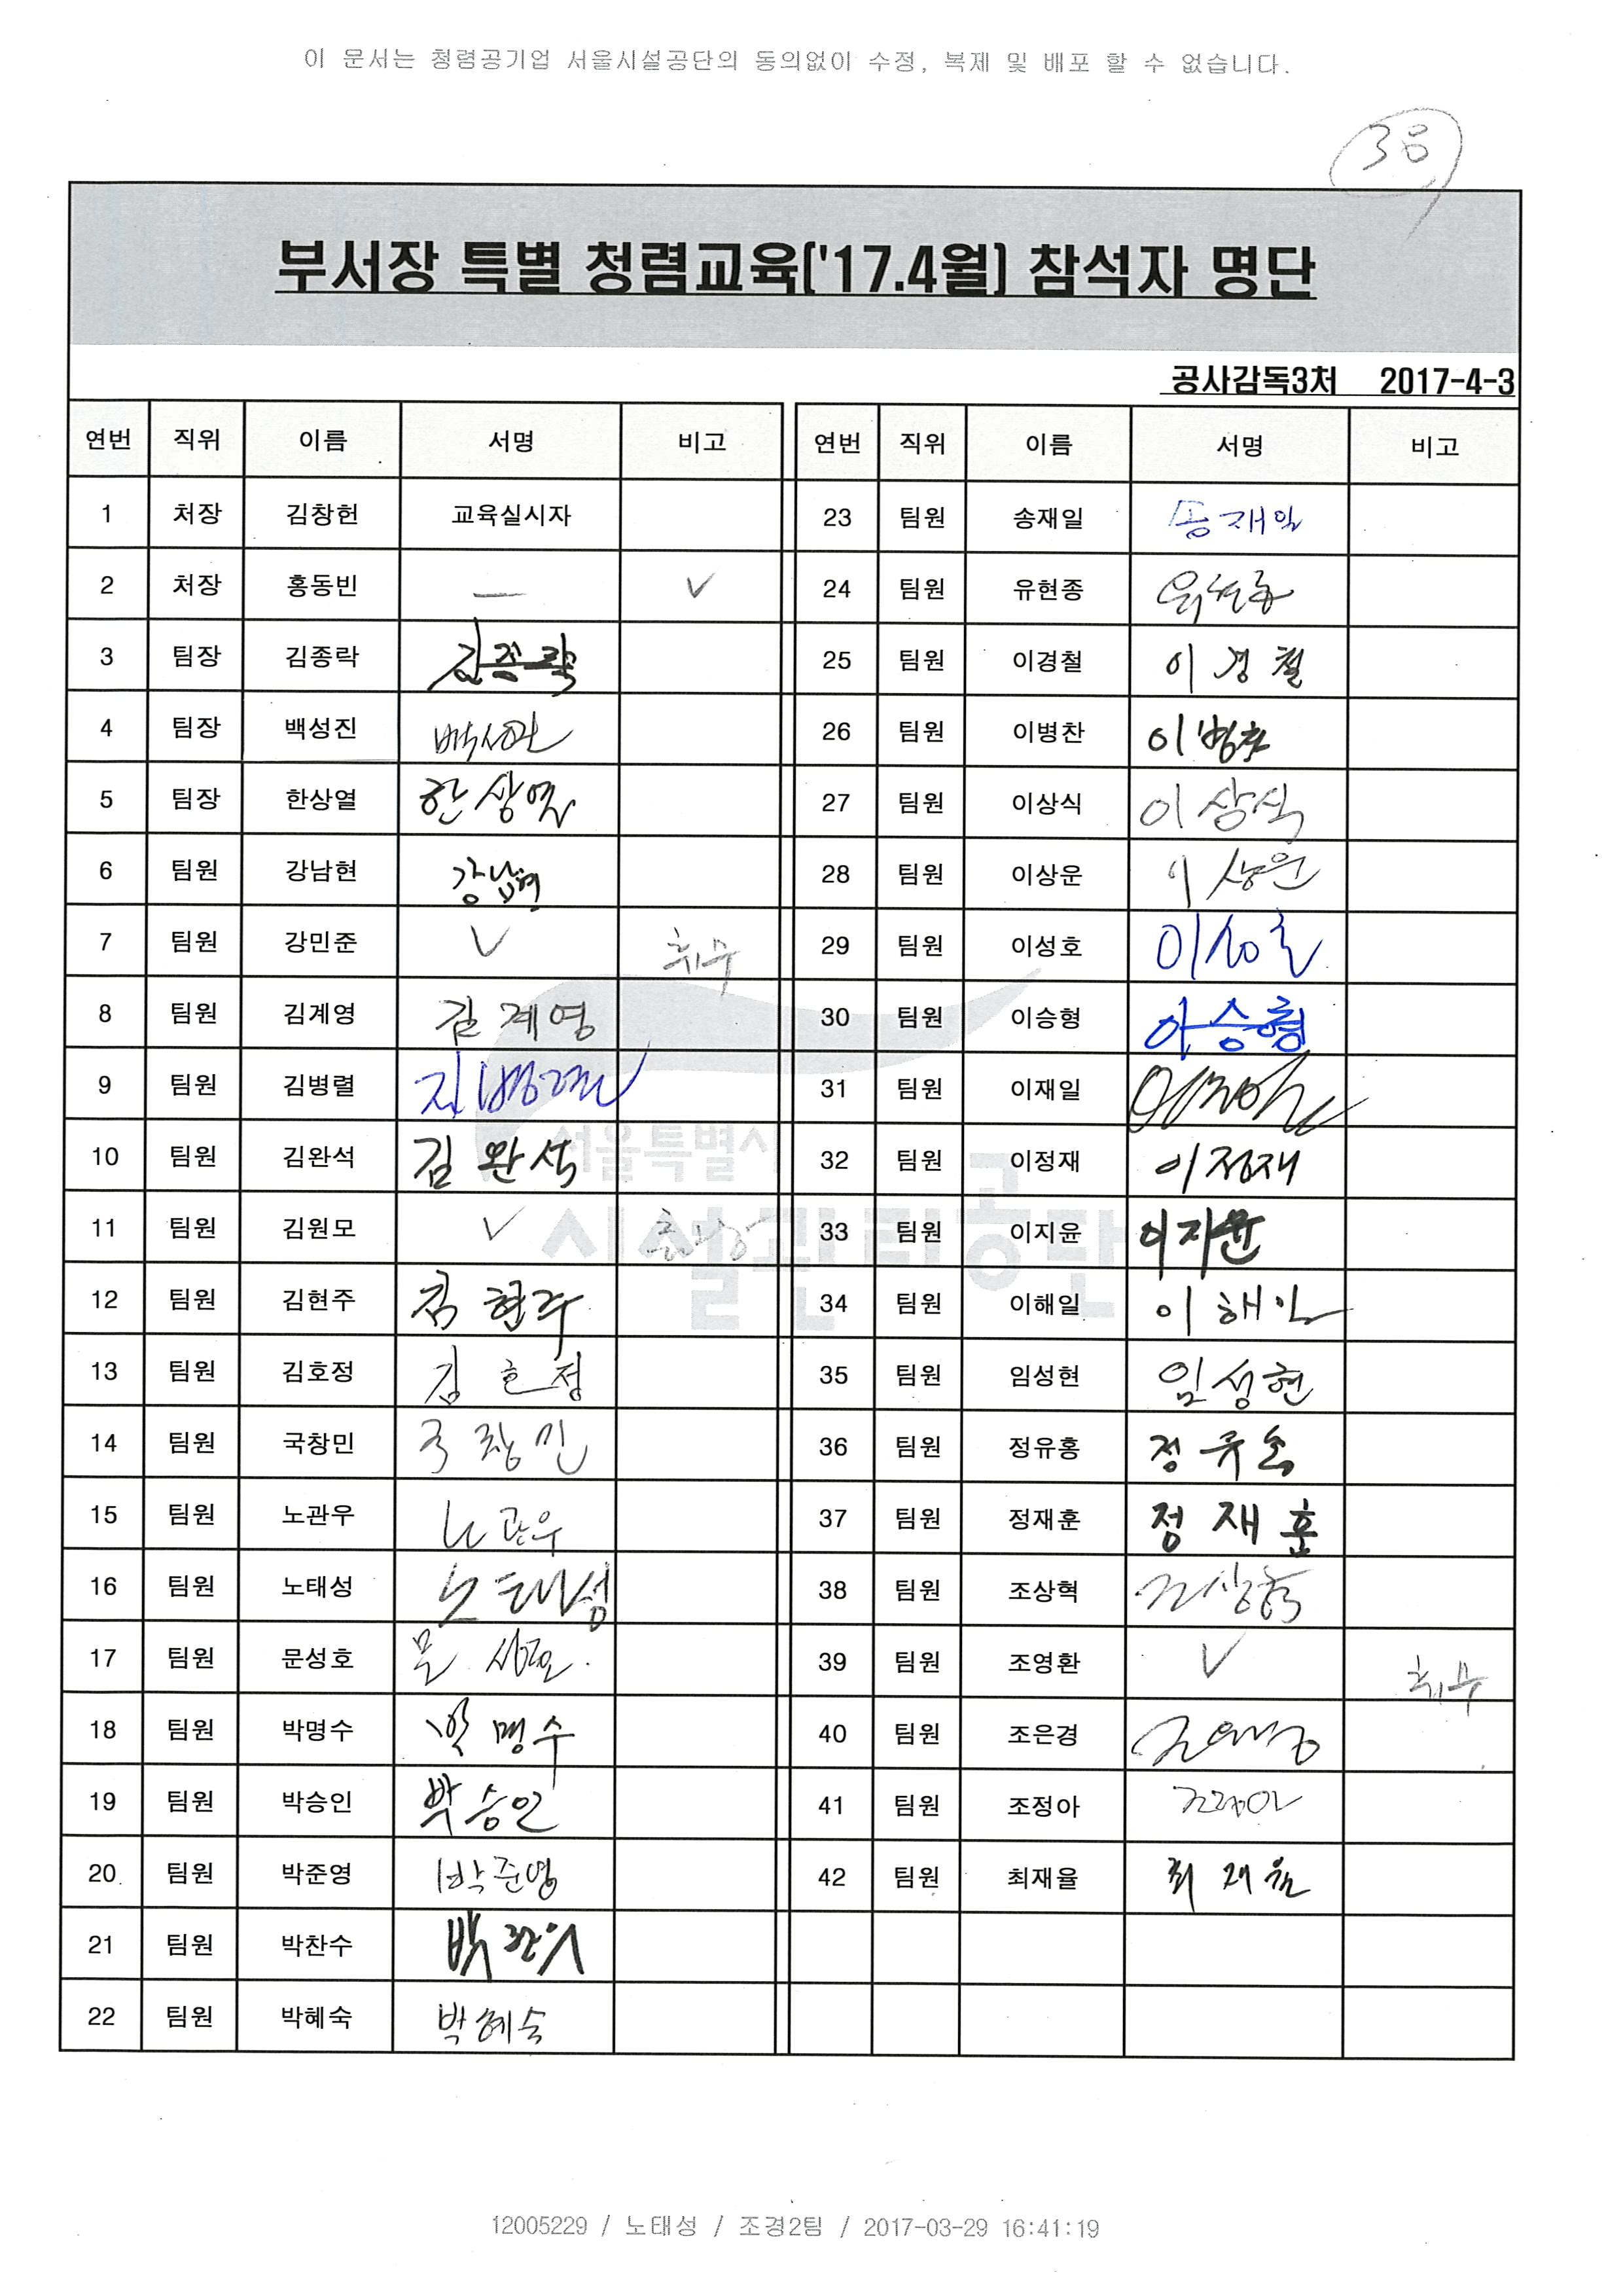 이 문서는 청렴공기업 서울시설공단의 동의없이 수정, 복제 및 배포 할 수 없습니다.
38
부서장 특별 청렴교육('17.4월) 참석자 명단
공사감독3처 2017-4-3
연번 직위 이름 서명 비고 연번 직위 이름 서명 비고
1 처장 김창헌 교육실시자 23 팀원 송재일 송재일
2 처장 홍동빈 — V 24 팀원 유현종 유현종
3 팀장 김종락 김종락 25 팀원 이경철 이경철
4 팀장 백성진 백성진 26 팀원 이병찬 이병찬
5 팀장 한상열 한상열 27 팀원 이상식 이상식
6 팀원 강남현 강남현 28 팀원 이상운 이상운
7 팀원 강민준 V 휴무 29 팀원 이성호 이성호
8 팀원 김계영 김계영 30 팀원 이승형 이승형
9 팀원 김병렬 김병렬 31 팀원 이재일 이재일
10 팀원 김완석 김완석 32 팀원 이정재 이정재
11 팀원 김원모 V 33 팀원 이지윤 이지윤
12 팀원 김현주 김현주 34 팀원 이해일 이해일
13 팀원 김호정 김호정 35 팀원 임성현 임성현
14 팀원 국창민 국창민 36 팀원 정유홍 정유홍
15 팀원 노관우 노관우 37 팀원 정재훈 정재훈
16 팀원 노태성 노태성 38 팀원 조상혁 조상혁
17 팀원 문성호 문성호 39 팀원 조영환 V 휴무
18 팀원 박명수 박명수 40 팀원 조은경 조은경
19 팀원 박승인 박승인 41 팀원 조정아 조정아
20 팀원 박준영 박준영 42 팀원 최재율 최재율
21 팀원 박찬수 박찬수
22 팀원 박혜숙 박혜숙
서울특별시
시설관리공단
12005229 / 노태성 / 조경2팀 / 2017-03-29 16:41:19